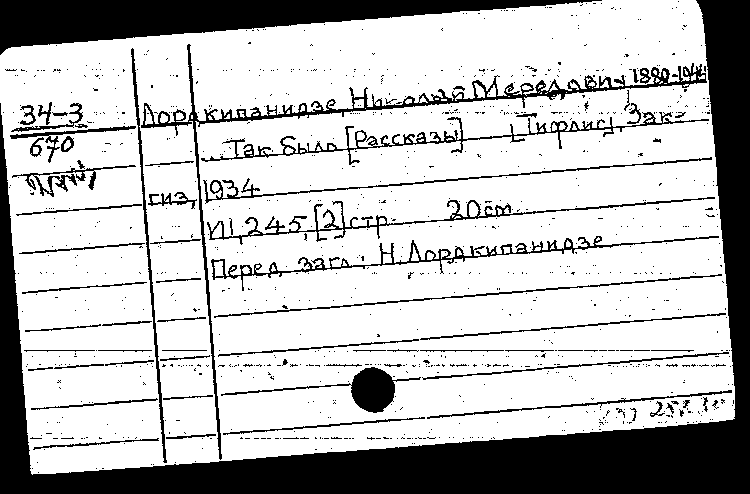 Лордкипанидзе, Николай Мерабович 1880-1944
34-3
670
... Так было [Рассказы] [Тифлис], Зак-
гиз, 1934
VII, 245, [2] стр. 20 cm
Перед загл.: Н. Лордкипанидзе